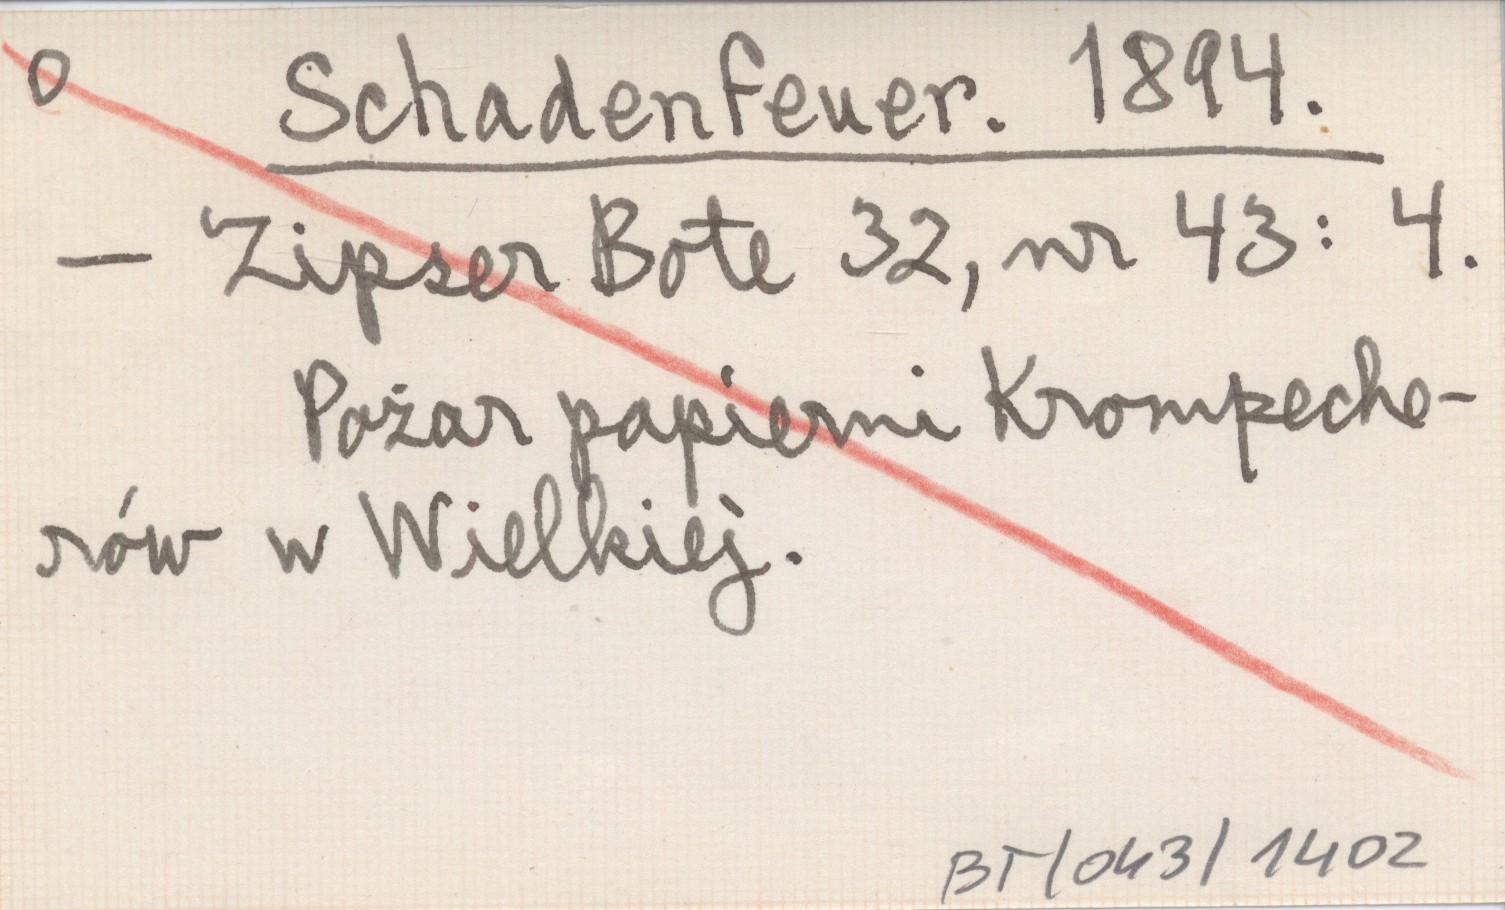 O Schadenfeuer. 1894.
— Zipser Bote 32, nr 43: 4.
Pożar papierni Krompeche-
rów w Wielkiej.
BT/043/1402